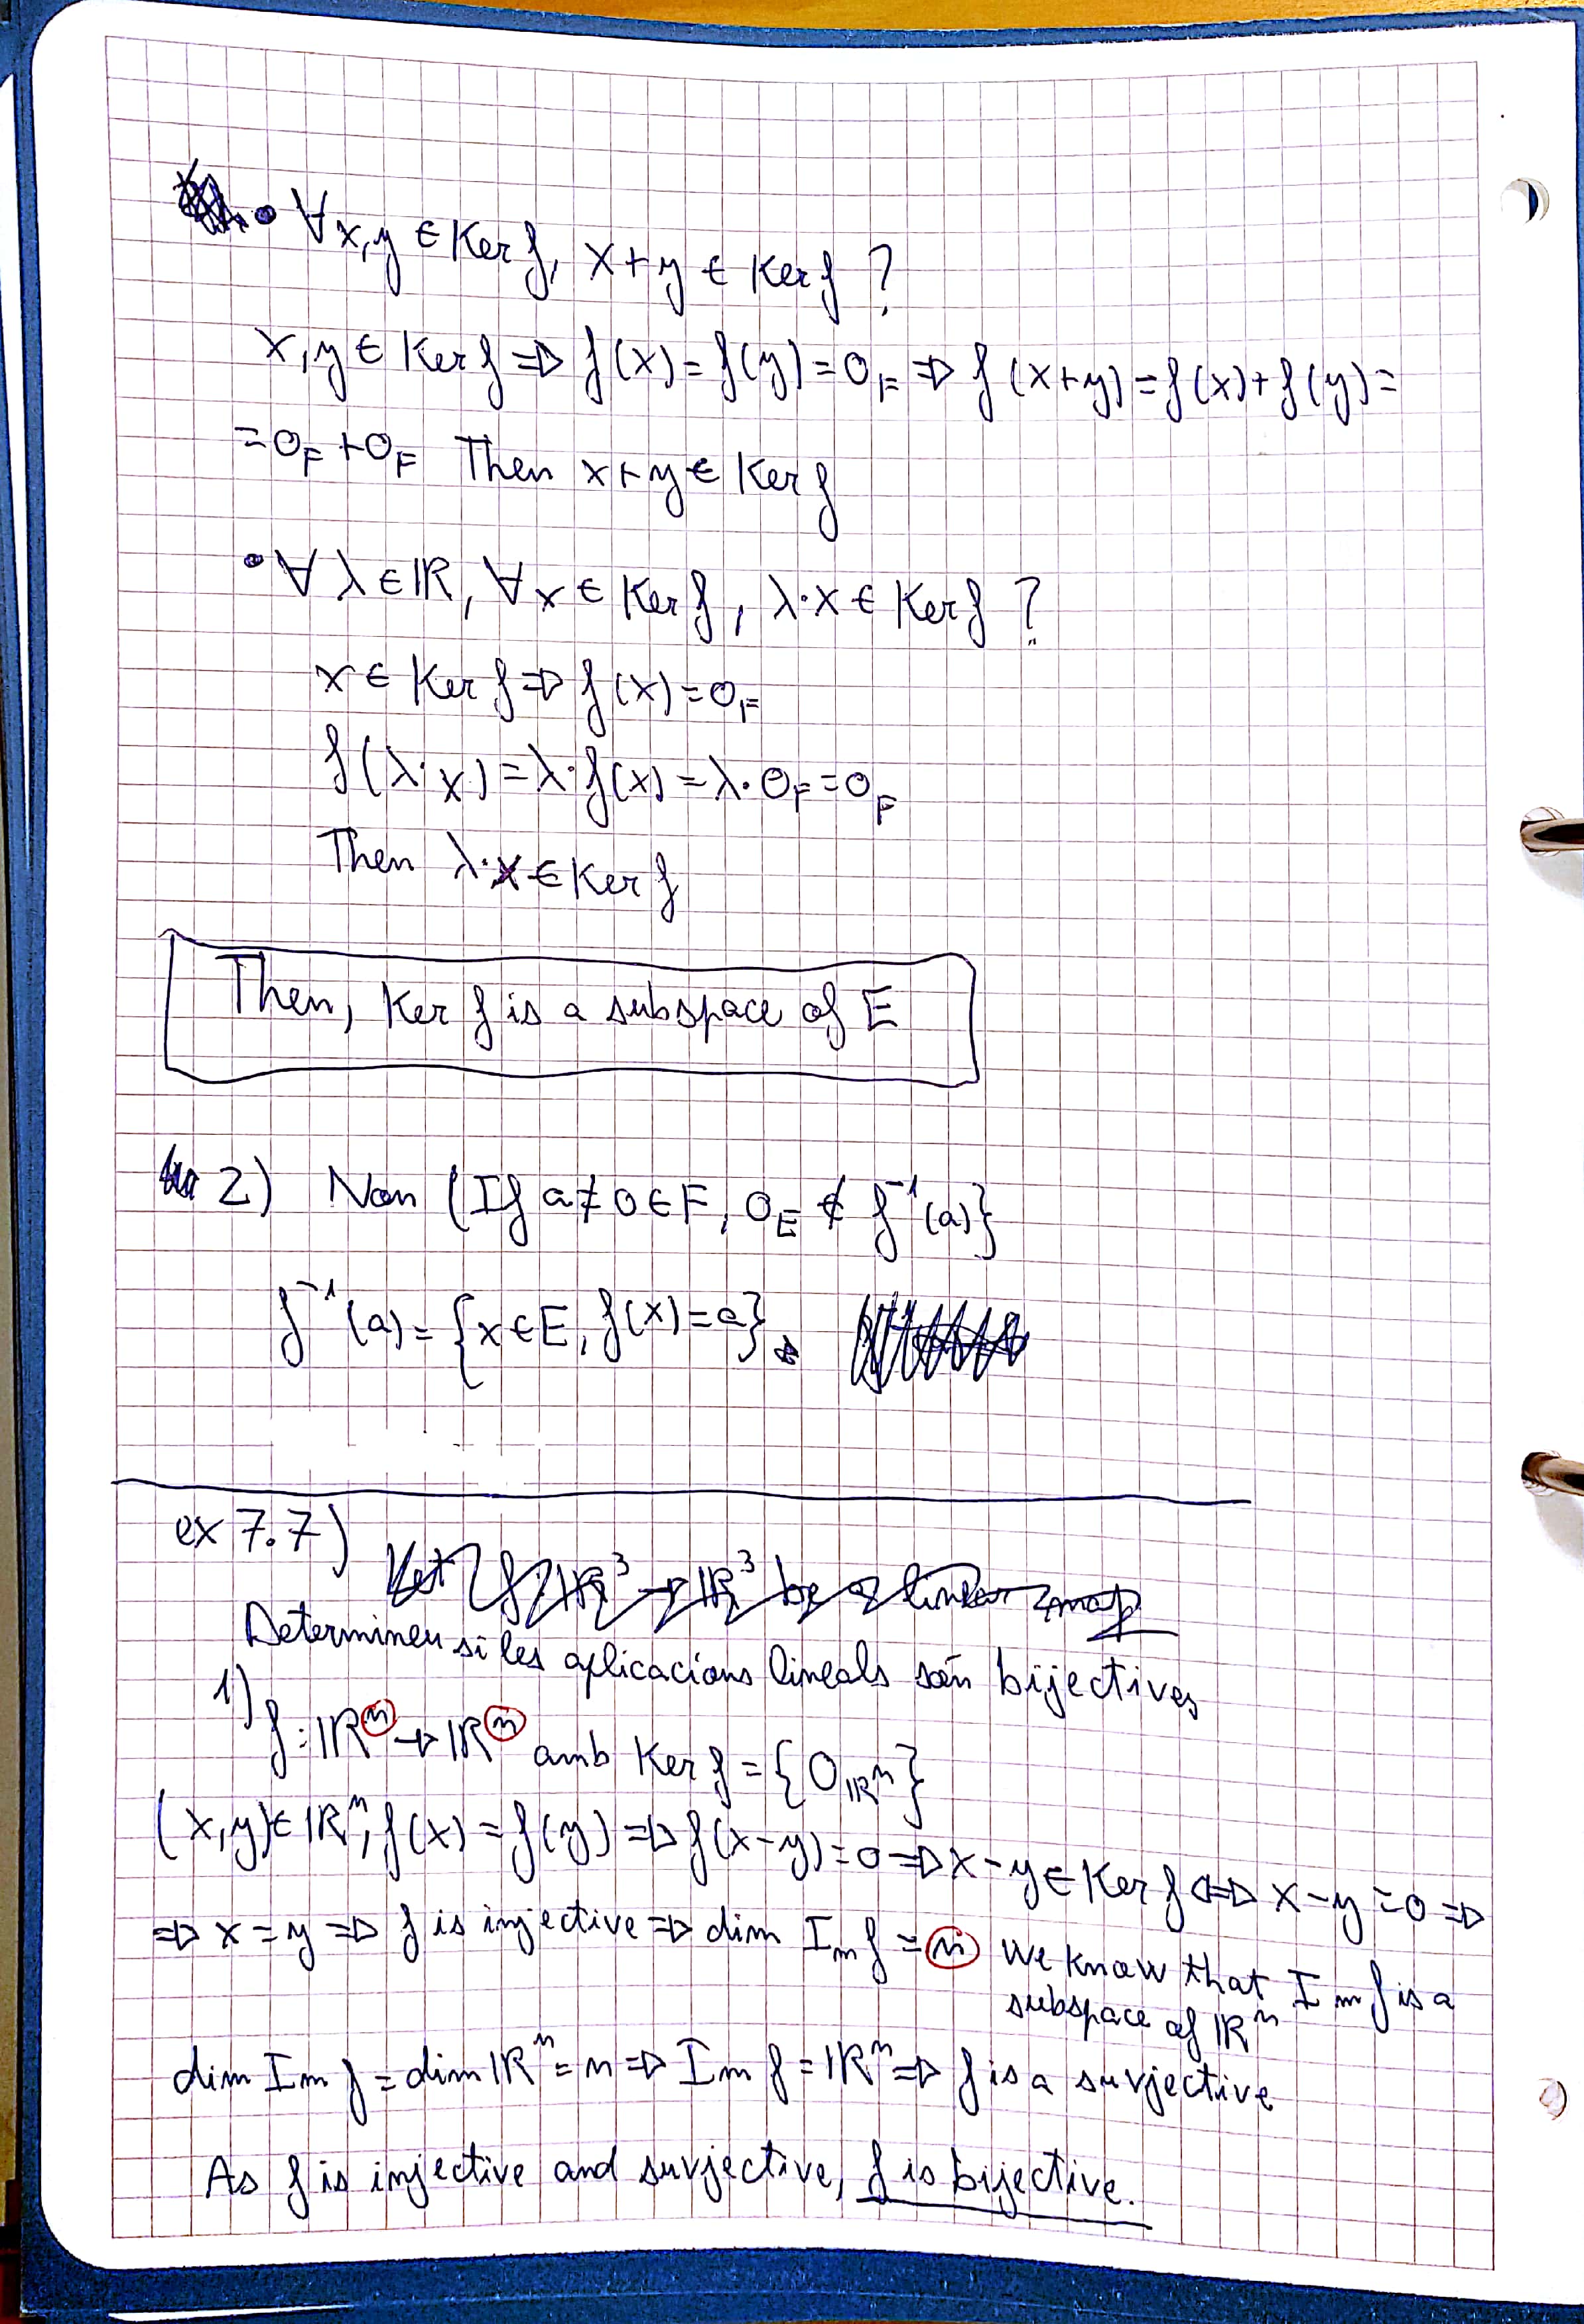 • ∀x,y ∈ Ker f, x+y ∈ Ker f ?
x,y ∈ Ker f ⇒ f(x) = f(y) = 0_F ⇒ f(x+y) = f(x) + f(y) =
= 0_F + 0_F Then x+y ∈ Ker f
• ∀ λ ∈ ℝ, ∀x ∈ Ker f, λ·x ∈ Ker f ?
x ∈ Ker f ⇒ f(x) = 0_F
f(λ·x) = λ·f(x) = λ·0_F = 0_F
Then λ·x ∈ Ker f
Then, Ker f is a subspace of E
2) Non (If a ≠ 0 ∈ F, 0_E ∉ f⁻¹(a)}
f⁻¹(a) = {x ∈ E, f(x) = a}.
ex 7.7)
Let f: ℝ³ → ℝ³ be a linear map
Determineu si les aplicacions lineals són bijectives
1) f: ℝⁿ → ℝⁿ amb Ker f = {0_ℝⁿ}
(x,y) ∈ ℝⁿ, f(x) = f(y) ⇒ f(x-y) = 0 ⇒ x-y ∈ Ker f ⇔ x-y = 0 ⇒
⇒ x = y ⇒ f is injective ⇒ dim Im f = n we know that Im f is a
subspace of ℝⁿ
dim Im f = dim ℝⁿ = n ⇒ Im f = ℝⁿ ⇒ f is a surjective
As f is injective and surjective, f is bijective.